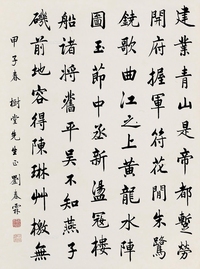 建業青山是帝都暫勞
開府握軍符花間朱鷺
鐃歌曲江之上黃龍水陣
圖玉節中丞新盪寇樓
船諸將舊平吳不知燕子
磯前地容得陳琳艸檄無
甲子春 樹堂先生正 劉春霖